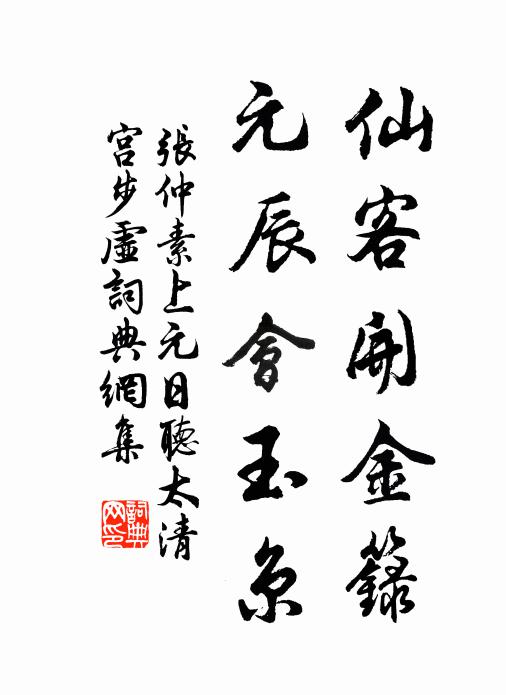 仙客開金籙
元辰會玉京
張仲素上元日聽太清
宮步虛詞典網集
詞典網印